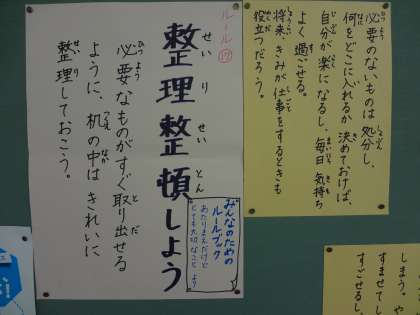 ルール⑰
整理整頓しよう
必要なものがすぐ取り出せる
ように、机の中はきれいに
整理しておこう。
みんなのための
ルールブック
あたりまえだけど
とても大切なこと より
必要のないものは処分し、
何をどこに入れるか決めておけば、
自分が楽になるし、毎日気持ち
よく過ごせる。
将来、きみが仕事をするときも
役立つだろう。
しまう。や
すませてし
すごせるし、